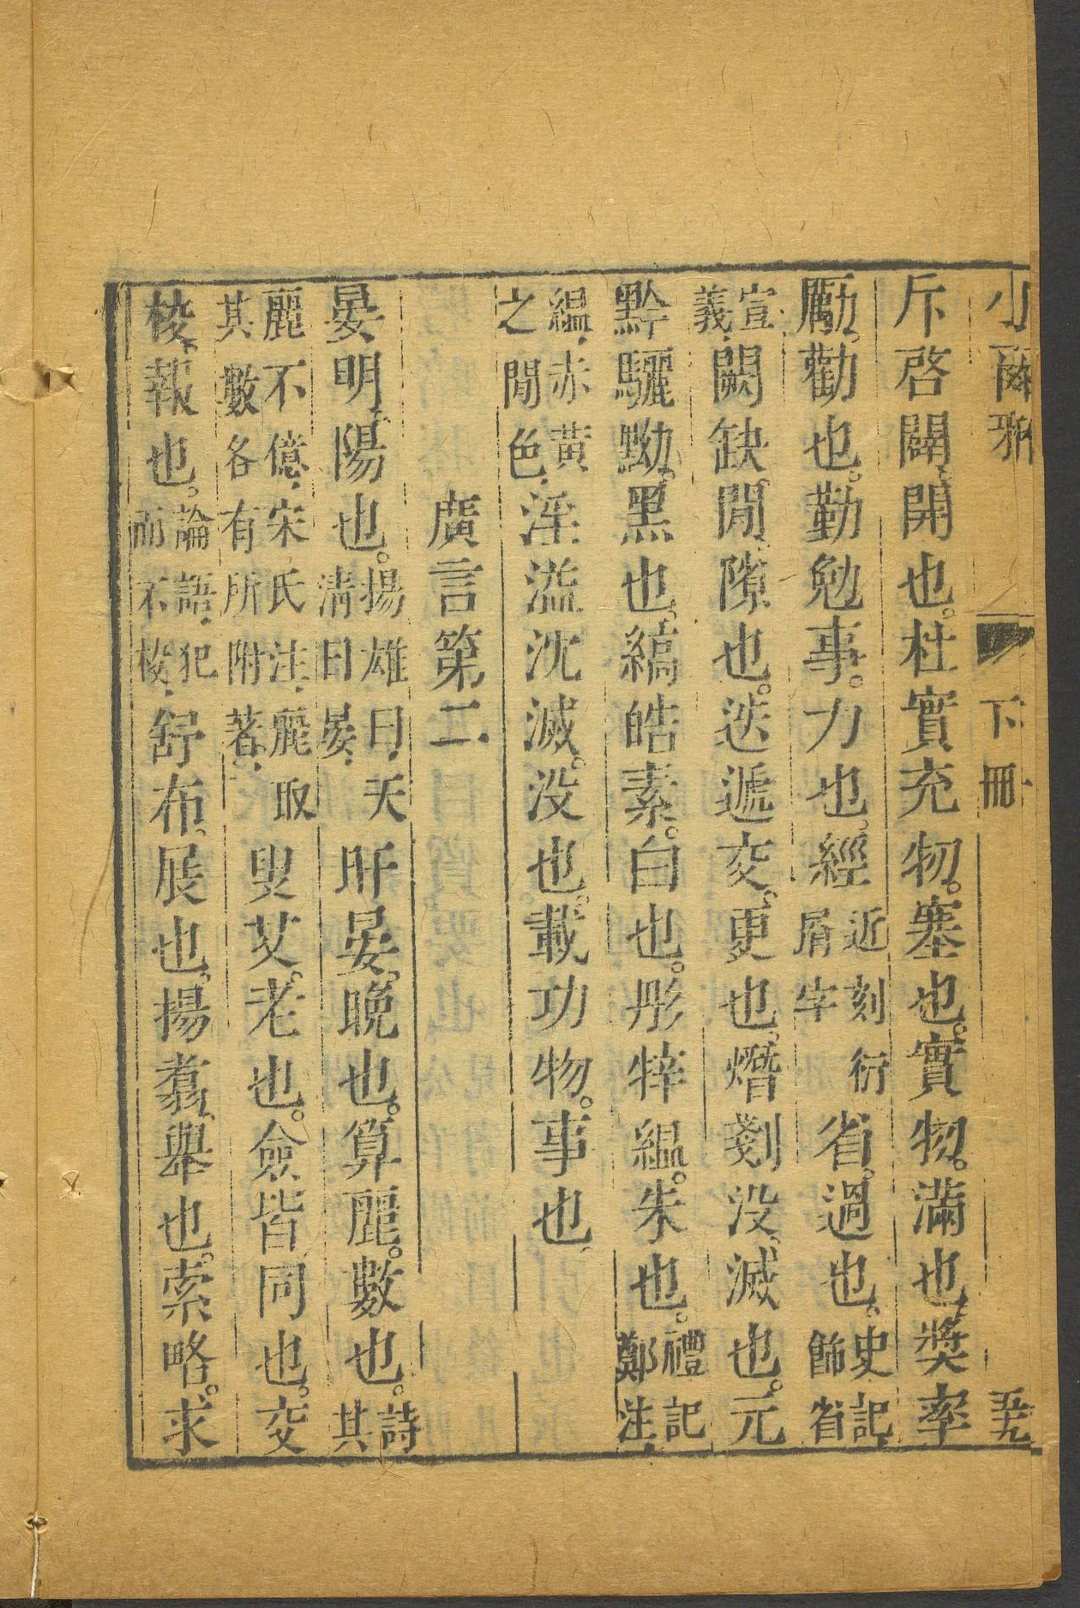 小爾雅 下冊 五九
斥啓闢開也杜實充牣塞也實牣滿也奬率
勵勸也勤勉事力也經近刻衍屑字省過也史記飾省
宣義闕缺閒隙也迭遞交更也熸剗没滅也元
黔驪黝黑也縞皓素白也彤牸緼朱也禮記鄭注
緼赤黃之閒色淫溢沈滅没也載功物事也
廣言第二
晏明陽也揚雄曰天清日晏旰晏晚也算麗數也詩其
麗不億宋氏注麗取其數各有所附著叟艾老也僉皆同也交
校報也論語犯而不校舒布展也揚翥舉也索略求